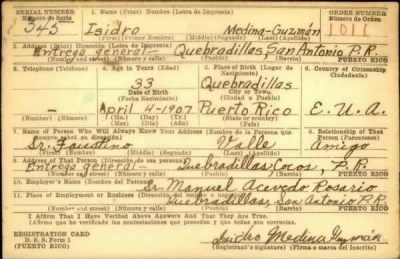 SERIAL NUMBER 1. Name (Print) Nombre (Letra de Imprenta) ORDER NUMBER
Número de Serie Número de Orden
345 Isidro Medina-Guzmán 1011
(First) (Primer Nombre) (Middle) (Segundo Nombre) (Last) (Apellido)
2. Address (Print) Dirección (Letra de Imprenta)
Entrega general- Quebradillas, San Antonio P.R.
(Number) (Número) (Street) (Calle) (Town) (Pueblo) (County) (Barrio) (State) (Estado)
3. Telephone (Teléfono) 4. Age in Years (Edad) 5. Place of Birth (Lugar de Nacimiento) 6. Country of Citizenship (Ciudadanía)
33 Quebradillas
Date of Birth (Fecha Nacimiento) (Town or County) (Ciudad o Pueblo)
- April 4-1907 Puerto Rico E.U.A.
(Number) (Número) (Mo.) (Mes) (Day) (Día) (Yr.) (Año) (State or country) (País)
7. Name of Person Who Will Always Know Your Address (Nombre de la Persona que siempre sabrá su dirección) 8. Relationship of That Person (Parentesco)
Sr. Faustino Valle Amigo
(Mr., Mrs., Miss) (First) (Primer Nombre) (Middle) (Segundo Nombre) (Last) (Apellido)
9. Address of That Person (Dirección de esa persona)
Entrega general- Quebradillas, Cocos, P.R.
(Number) (Número) (Street) (Calle) (Town) (Pueblo) (County) (Barrio) (State) (Estado)
10. Employer's Name (Nombre del Patrono)
Sr. Manuel Acevedo Rosario
11. Place of Employment or Business (Dirección del patrono)
Quebradillas, San Antonio P.R.
(Number) (Número) (Street) (Calle) (Town) (Pueblo) (County) (Barrio) (State) (Estado)
I Affirm That I Have Verified Above Answers And That They Are True.
(Afirmo que he verificado las contestaciones que preceden y que todas son correctas.)
REGISTRATION CARD
D. S. S. Form 1 Isidro Medina Guzmán
(PUERTO RICO) (Registrant's signature) (Firma o marca del inscrito)